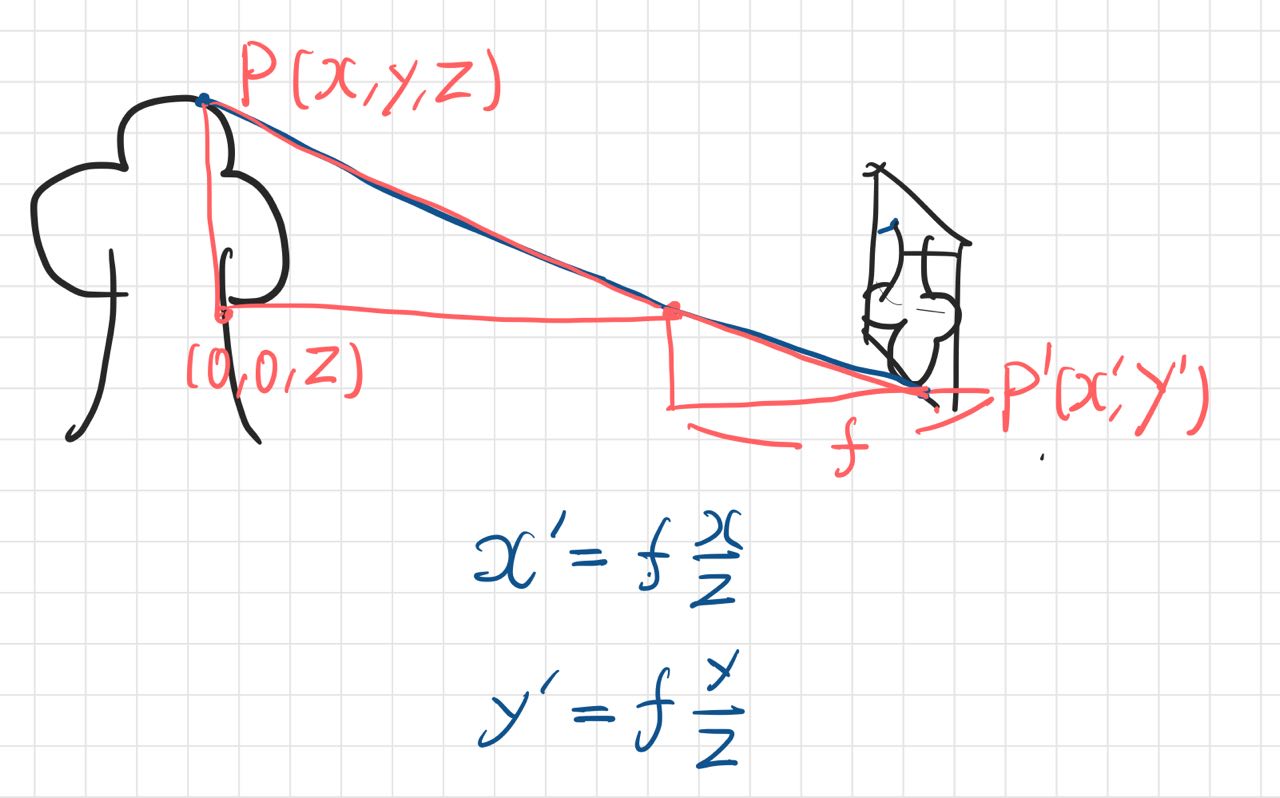 P(x,y,z)
(0,0,z)
P'(x',y')
f
x' = f x/z
y' = f y/z